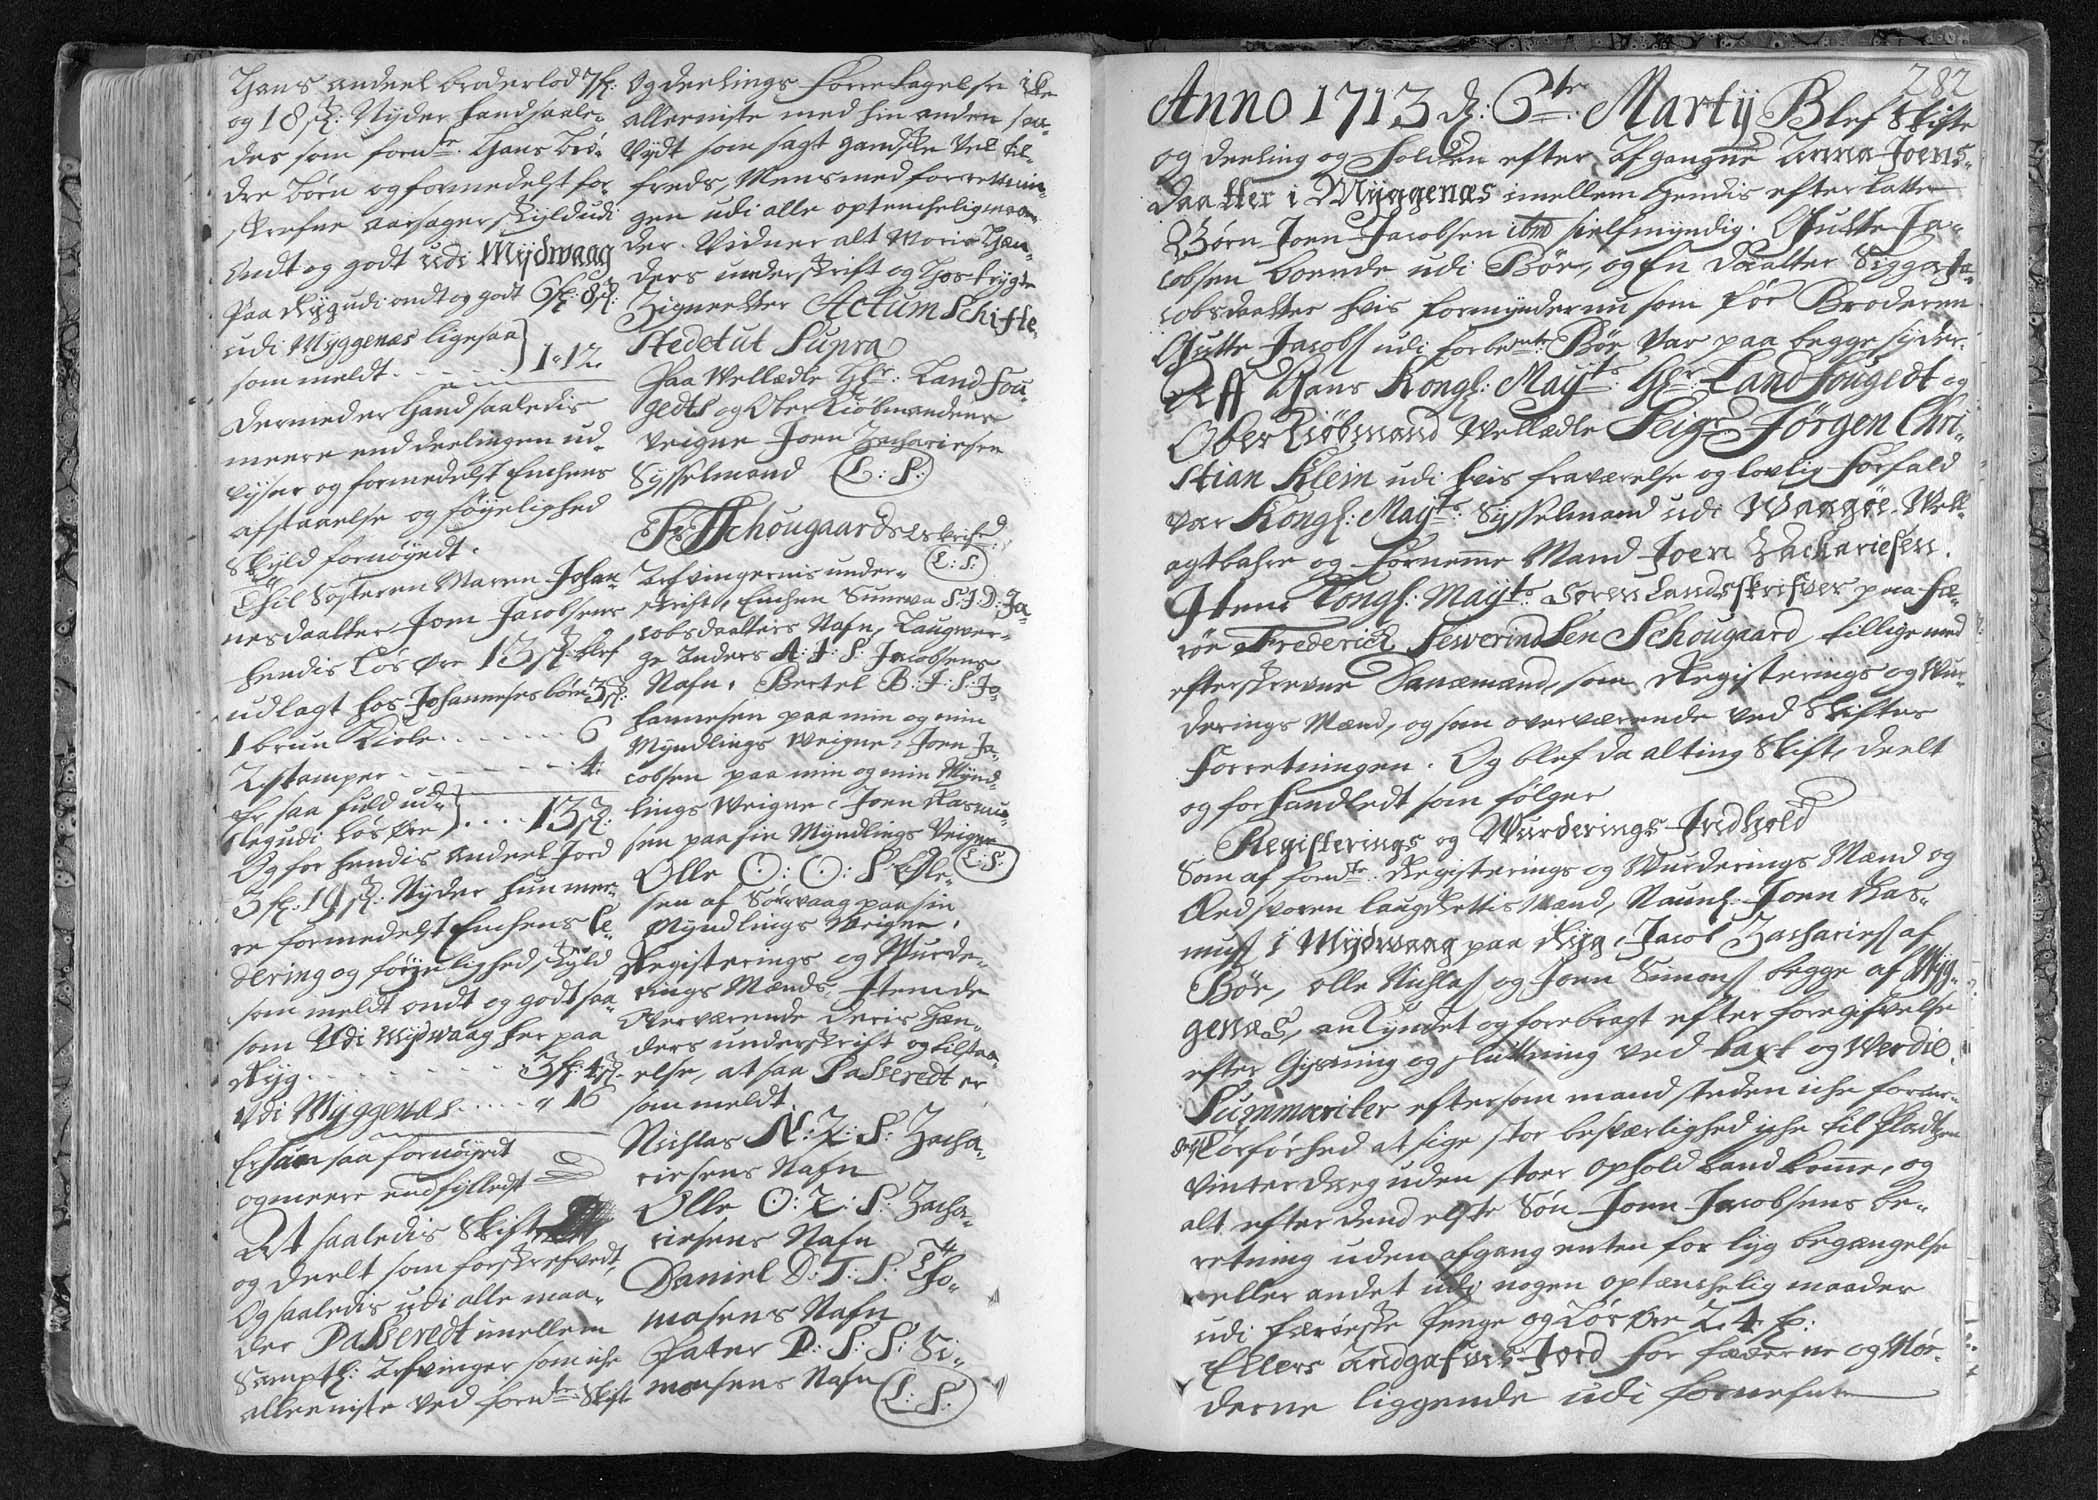 Hans andeel broderlod 7 f:
og 18 sk: Nyder hand saale-
des som forndte. Hans Brø-
dre børn og formedelst for
skrefne aarsager skyld udi
ondt og godt udi Mydwaag
Paa Ryg udi ondt og godt 6 f: 8 sk:
udi Myggenæs ligesaa
som meldt . . . . . 1 " 12.
dermed er hand saaledis
meere end deelingen ud-
viser og formedelst Enchens
afstaaelse og føyelighed
skyld fornøyedt.
Til Søsteren Maren Johan-
nesdaatter Joen Jacobsens
hendis Løs Øre 13 sk: blef
udlagt hos Johanneses børn 3 sk:
1 brun Kiole . . . . . 6
2 stamper . . . . . 4.
Er saa fuld ud-
legudi Løs Øre . . . . 13 sk:
Og for hendis andeel Jord
3 f: 19 sk: Nyder hun mee-
re formedelst Enchens
dering og føyelighed skyld
som meldt ondt og godt saa
som Udi Mydwaag her paa
Ryg . . . . . . 3 f: 4 sk.
Udi Myggenæs . . . . " 16
Er hun saa fornøyedt
og meere end fylledt
At saaledis Skift
og deelt som forskrefvedt,
Og saaledis udi alle maa-
der Passeredt imellem
Samptl: Arfvinger som iche
alleeniste ved forndte Skift
Og deelings forretagelse iche
alleeniste med hin anden saa-
vydt som sagt gandske vel til-
freds, Mens med forretnin-
gen udi alle optenchelig maa-
der. Vidner alt Woris Hæn-
ders underskrift og hostrygte
Zigneetter Actum Schifte-
stedet ut Supra
Paa Wellædle Hr: Land Fou-
gedts og Ober Kiøbmandens
Veigne Joen Zachariesen
Sysselmand (L: S:)
Fr: S: Schougaard LSkrifr
(L: S:)
Arfvingernis under-
skrift, Enchen Sunneva S: J: D: Ja-
cobsdaatters Nafn, Laugwer-
ge Anders A: J: S: Jacobsens
Nafn. Bertel B: J: S: Jo-
hannesen paa min og min
Myndlings Weigne, Joen Ja-
cobsen paa min og min Mynd-
lings Weigne, Joen Rasmu-
sen paa sin Myndlings Veigne
Olle O: O: S: Olle- (L: S:)
sen af Sørvaag paa sin
Myndlings Weigne,
Registerings og Wurde-
rings Mænds, Item de
Overværende deris Hæn-
ders underskrift og tilstaa-
else, at saa Passeredt er
som meldt.
Nichlas N: Z: S: Zacha-
riesens Nafn
Olle O: Z: S: Zacha-
riesens Nafn
Daniel D: T: S: Tho-
masens Nafn
Pater P: S: S: Si-
monsens Nafn (L: S:)
282
Anno 1713 d: 6te Martij Blef Skifte
og deeling og holden efter afgangne Anna Joens-
daatter i Myggenæs imellem hendis efterlatte
Børn Joen Jacobsen ibm sielfmyndig. Gutte Ja-
cobsen boende udi Bøe, og En daatter Sigga Ja-
cobsdaatter hvis formynder nu som før Broderen
Gutte Jacobs udi forbente Bøe Var paa begge syder.
Aff Hans Kongl: Mayts Hr: Land Fougedt og
Ober Kiøbmand Wellædle Seigr Jörgen Chri-
stian Klein udi hvis fraværelse og lovlig forfald
var Kongl: Mayts: Sysselmand udi Waagøe. Well-
agtbahre og Forneme Mand Joen Zachariesen.
Item Kongl: Mayts: Soren landsskrifver paa Fæ-
røe Frederich Sewerindsen Schougaard, tillige med
efterskrevne Danæmænd, som Registerings og Wur-
derings Mænd, og som overværende ved Skiftes
Forretningen. Og blef da alting Skift, deelt
og forhandledt som følger
Registerings og Wurderings Indhold
Som af forndte Registerings og Wurderings Mænd og
Aedsvoren laugrettis Mænd, Naunl: Joen Ras-
muss i Mydwaag paa Ryg, Jacob Zachariess af
Bøe, Olle Nichlas og Joen Simonss begge af Myg-
genæs, anKyndet og forebragt efter foregifvelse
efter Gisning og sluttning ved taxt og Werdie.
Summariter eftersom mand steden iche for
førhed at sige stor beskærlighed iche til Pladtzen
vinter dag uden stoer ophold Land komme, og
alt efter dend elste Søn Joen Jacobsens be-
retning uden afgang enten for lyg begængelse
eller andet udi nogen optænchelig maader
udi færøeske Penge og Løs Øre 24 f:
Ellers Andgafvis Jord for fæderne og Mø-
derne liggende udi fornefnte